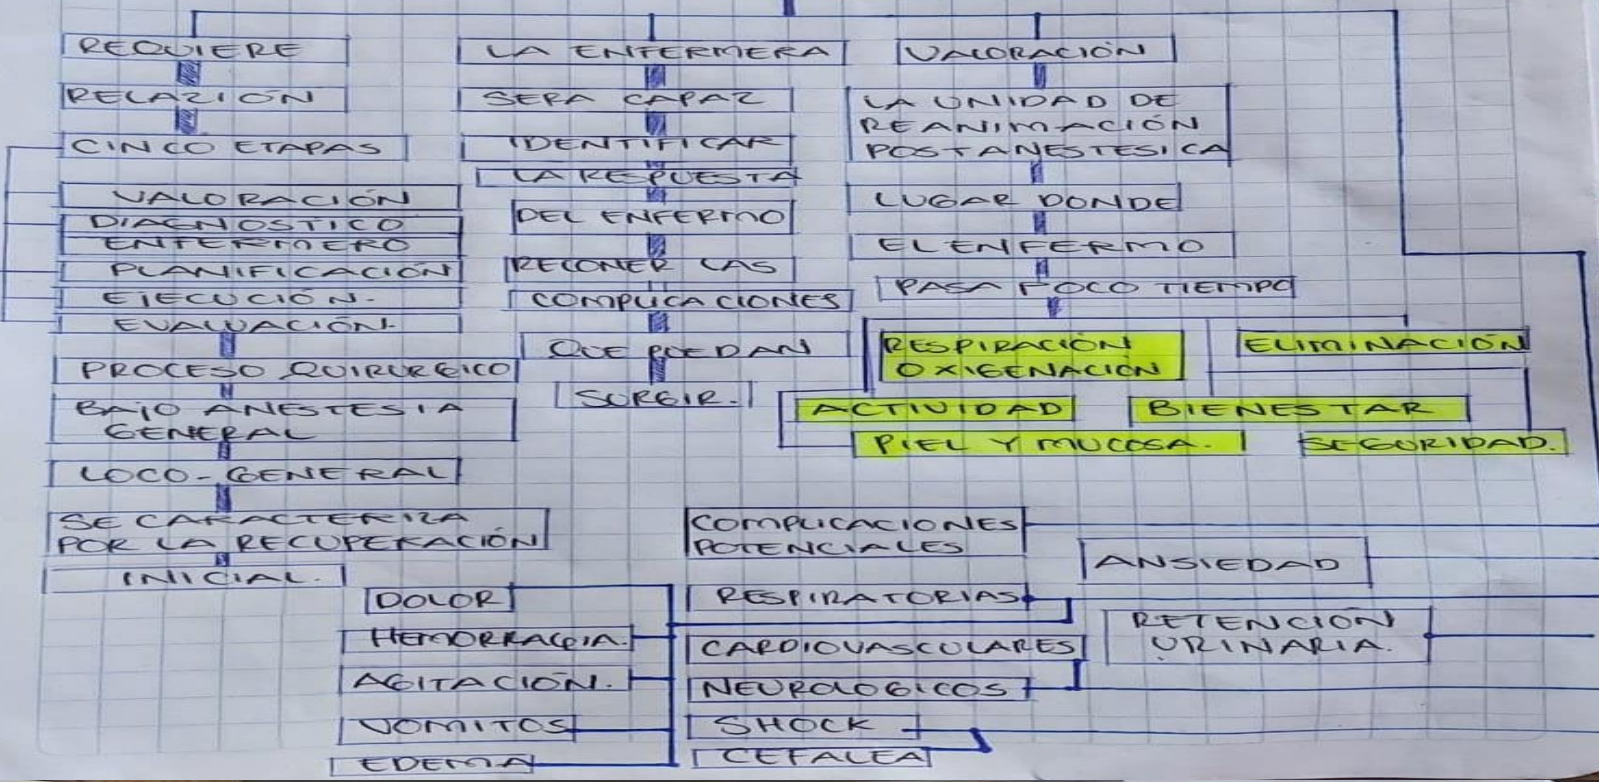 REQUIERE
RELAZIÓN
CINCO ETAPAS
VALORACIÓN
DIAGNOSTICO
ENFERMERO
PLANIFICACIÓN
EJECUCIÓN.
EVALUACIÓN.
PROCESO QUIRURGICO
BAJO ANESTESIA
GENERAL
LOCO-GENERAL
SE CARACTERIZA
POR LA RECUPERACIÓN
INICIAL.
LA ENFERMERA
SERA CAPAZ
IDENTIFICAR
LA REPUESTA
DEL ENFERMO
RECONER LAS
COMPLICACIONES
QUE PUEDAN
SURGIR.
VALORACIÓN
LA UNIDAD DE
REANIMACIÓN
POSTANESTESICA
LUGAR DONDE
EL ENFERMO
PASA POCO TIEMPO
RESPIRACIÓN
OXIGENACIÓN
ELIMINACIÓN
ACTIVIDAD
BIENESTAR
PIEL Y MUCOSA.
SEGURIDAD.
COMPLICACIONES
POTENCIALES
ANSIEDAD
RESPIRATORIAS
RETENCIÓN
URINARIA.
CARDIOVASCULARES
NEUROLOGICOS
SHOCK
CEFALEA
DOLOR
HEMORRAGIA.
AGITACIÓN.
VOMITOS
EDEMA